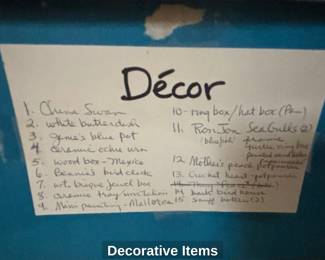 Décor
1. China Swan
2. white butter dish
3. Jane's blue pot
4. ceramic ochre urn
5. wood box - Mexico
6. Bernie's bird clock
7. art. brique jewel box
8. ceramic tray imitation
9. Mini painting - Mallorca
10 - ring box / hat box (Pam)
11. Ronson Sea Gulls (2)
frame
12 Mother's peace potpourri
13. Cricket heart - potpourri
14 bark bird house
15 snuff bottles (2)
Decorative Items